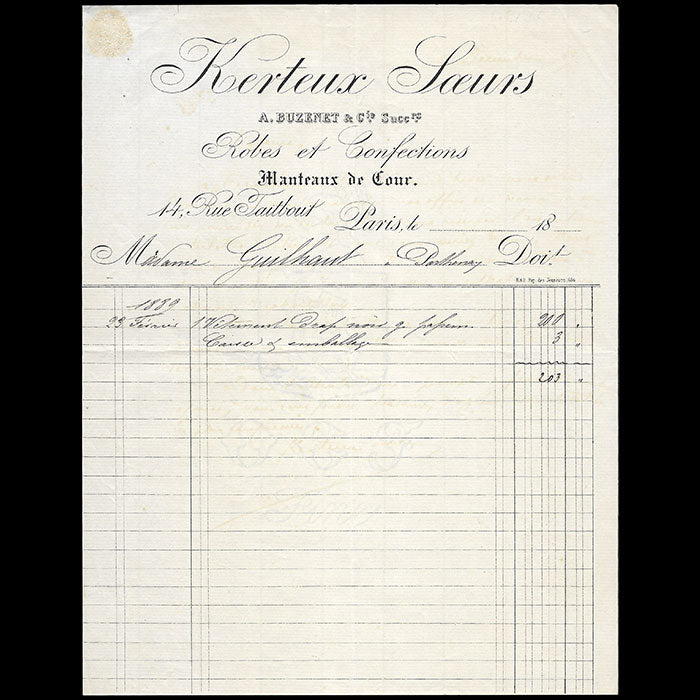 Kerteux Sœurs
A. BUZENET & Cie Succrs
Robes et Confections
Manteaux de Cour.
14, Rue Taitbout
Paris, le 18
Madame Guilhaut à Parthenay Doit
1889
23 Février 1 Vêtement drap noir g. 200 "
Caisse & emballage 3 "
203 "